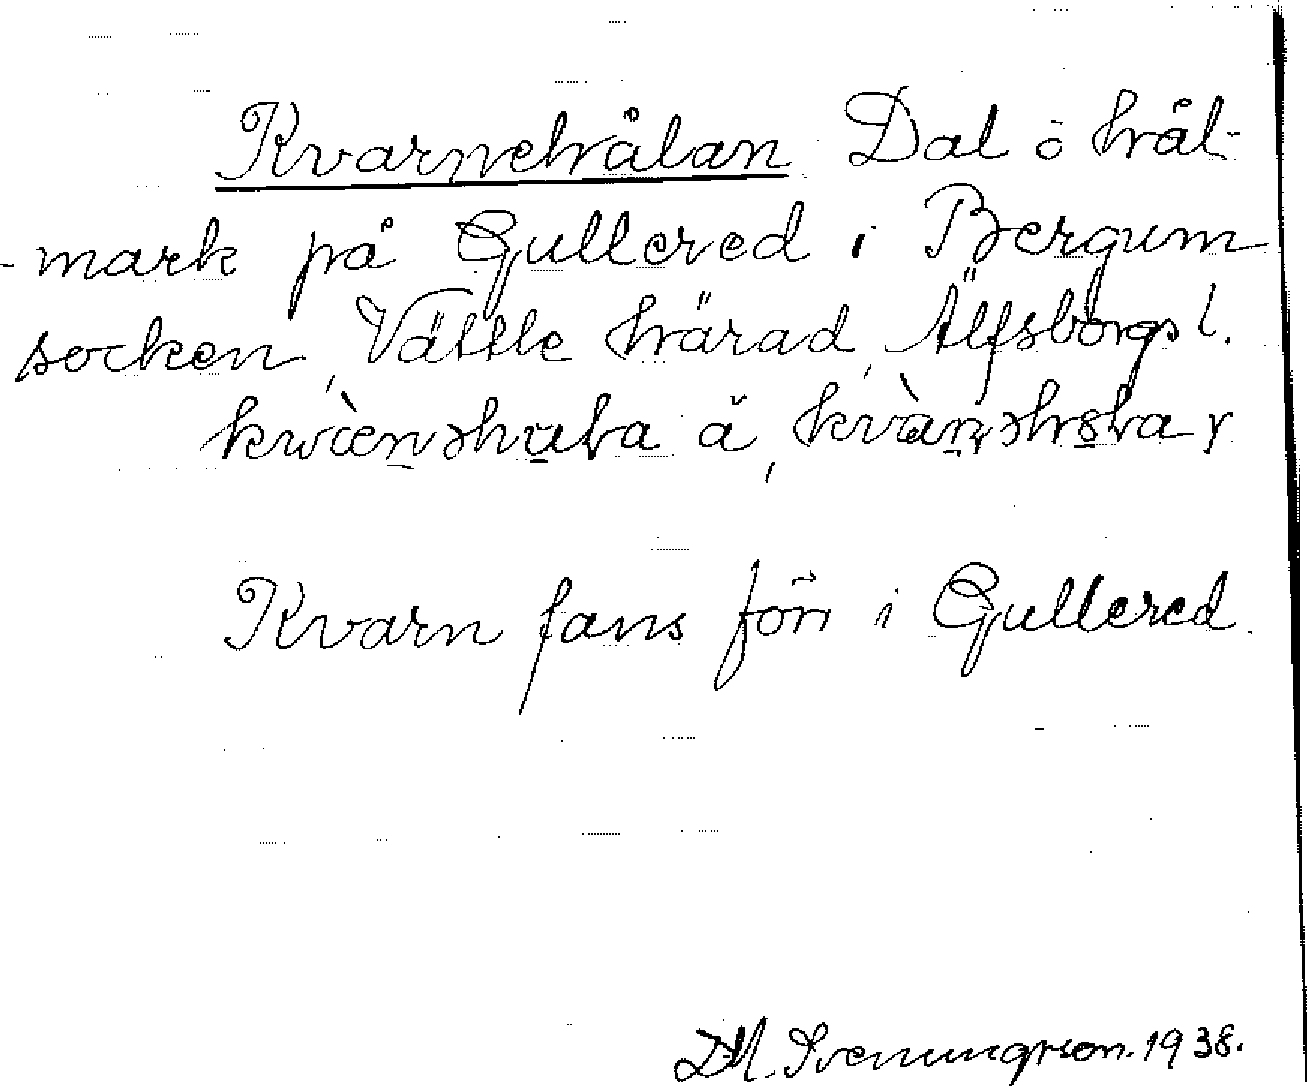 Kvarnehålan Dal o hål-
-mark på Gullered i Bergum
socken, Vättle härad, Älfsborgs l.
Kvarn fans förr i Gullered.
Svenungsson. 1938.